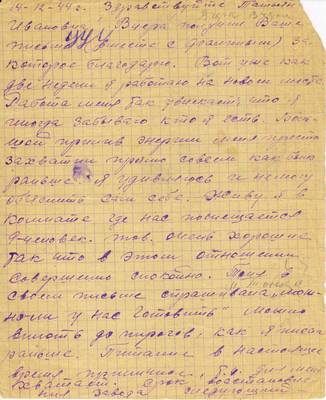 14-12-44 г. Здравствуйте
Ивановна! Вчера получил Ваше
письмо (вместе с) за
которое благодарю. Вот уже как
две недели я работаю на новом месте.
Работа меня так увлекает, что я
иногда забываю кто я есть.
прилив энергии меня просто
захватил прямо совсем как было
раньше. я удивляюсь и не могу
объяснить сам себе. Живу я в
комнате где нас помещается
9 человек. тов. очень хорошие
так что в этом отношении
совершенно спокойно. Тоня в
своем письме спрашивала
у нас готовить
вплоть до пирогов, как я писал
раньше. Питание в настоящее
время приличное, т.к. для меня
хватает. Срок восстановле-
ния завода